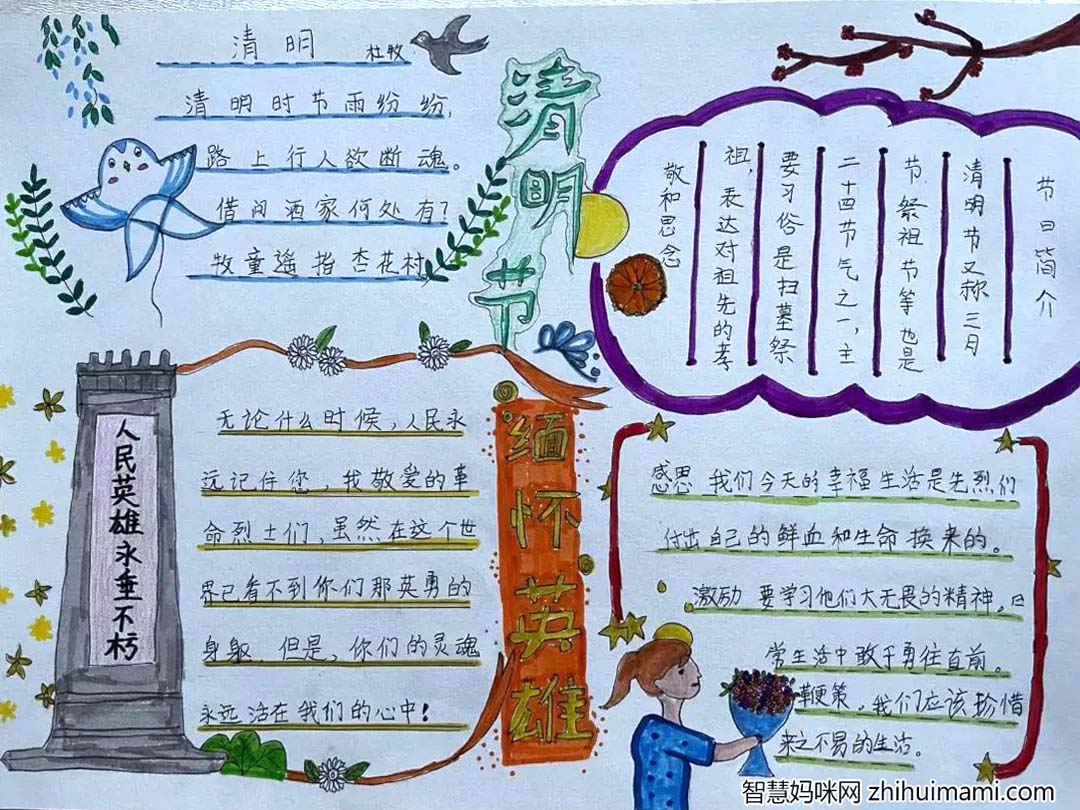 清明 杜牧
清明时节雨纷纷,
路上行人欲断魂。
借问酒家何处有?
牧童遥指杏花村
清明节
节日简介
清明节又称三月
节祭祖节等也是
二十四节气之一,主
要习俗是扫墓祭
祖,表达对祖先的孝
敬和思念
人民英雄永垂不朽
无论什么时候,人民永
远记住您,我敬爱的革
命烈士们,虽然在这个世
界已看不到你们那英勇的
身躯.但是,你们的灵魂
永远活在我们的心中!
缅怀英雄
感思 我们今天的幸福生活是先烈们
付出自己的鲜血和生命换来的。
激励 要学习他们大无畏的精神。日
常生活中敢于勇往直前。
鞭策。我们应该珍惜
来之不易的生活。
智慧妈咪网 zhihuimami.com